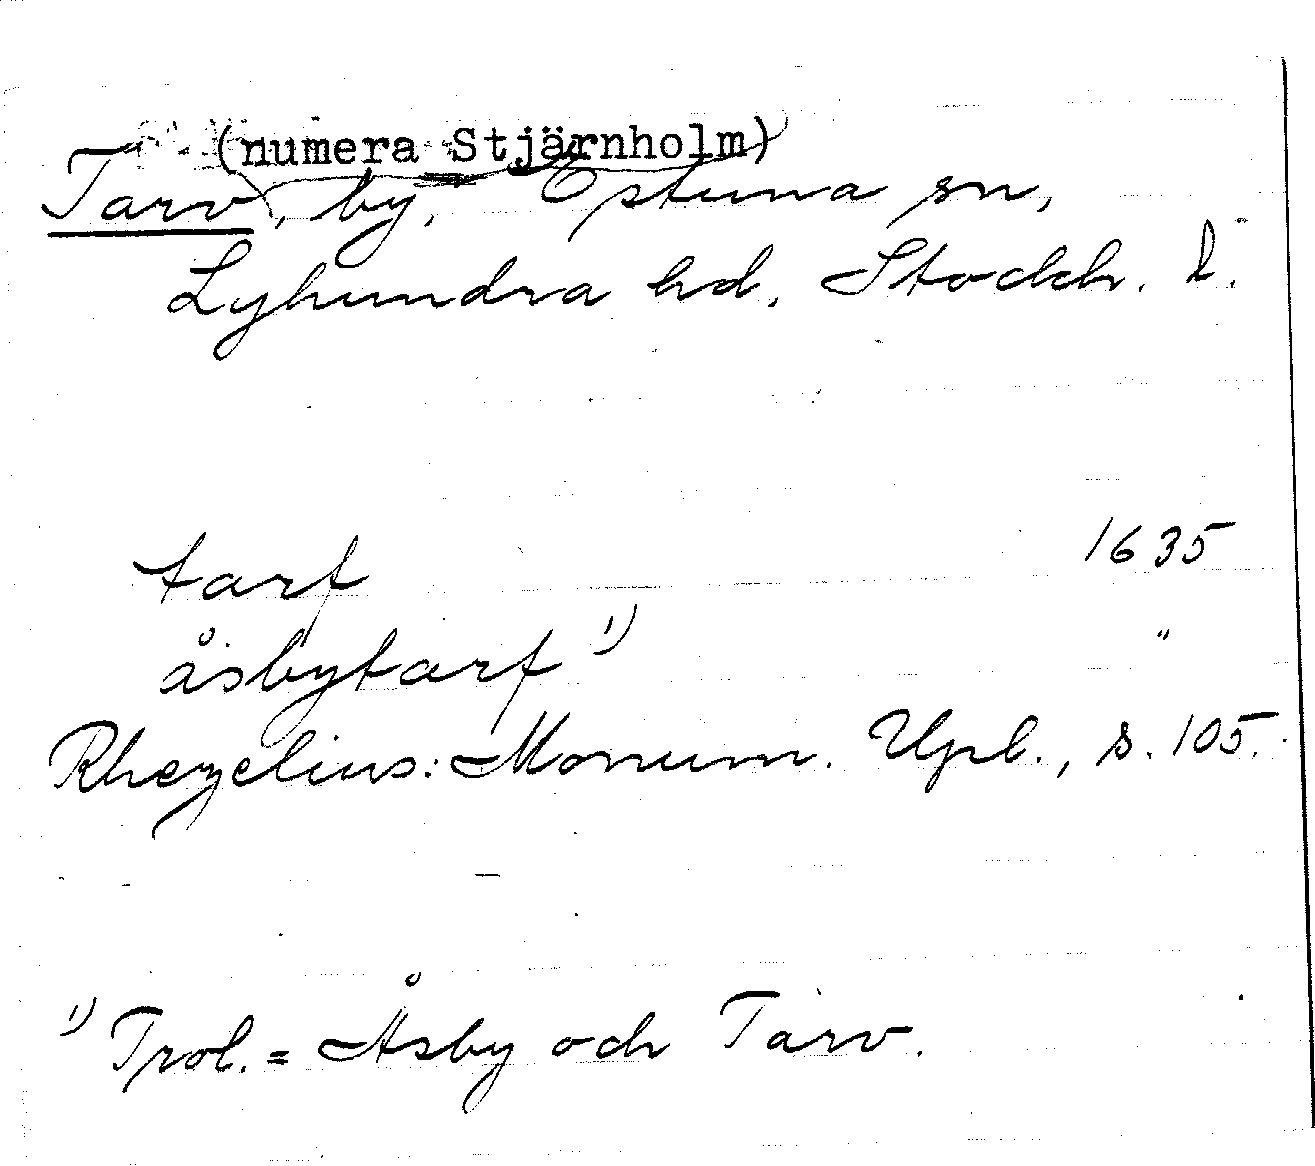 (numera Stjärnholm)
Tarv, by, Estuna sn,
Lyhundra hd, Stockh. l.
tarf 1635
åsbytarf 1) "
Rhezelius: Monum. Upl., s. 105.
1) Trol. = Åsby och Tarv.